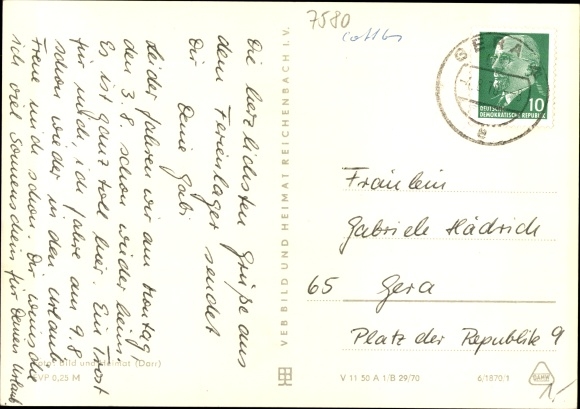 7580
Cottbus
Die herzlichsten Grüße aus
dem Ferienlager sendet
Dir Deine Gabi
Leider fahren wir am Montag,
den 3.8. schon wieder heim.
Es ist ganz toll hier. Ein Trost
für mich, ich fahre am 9.8.
schon wieder in den Urlaub
Freue mich schon. Dir wünsche
ich viel Sonnenschein für Deinen Urlaub
VEB BILD UND HEIMAT REICHENBACH I. V.
GERA
DEUTSCHE
DEMOKRATISCHE REPUBLIK
10
Fräulein
Gabriele Hädrich
65 Gera
Platz der Republik 9
Bild und Heimat (Darr)
EVP 0,25 M
V 11 50 A 1/B 29/70
6/1870/1
1,-